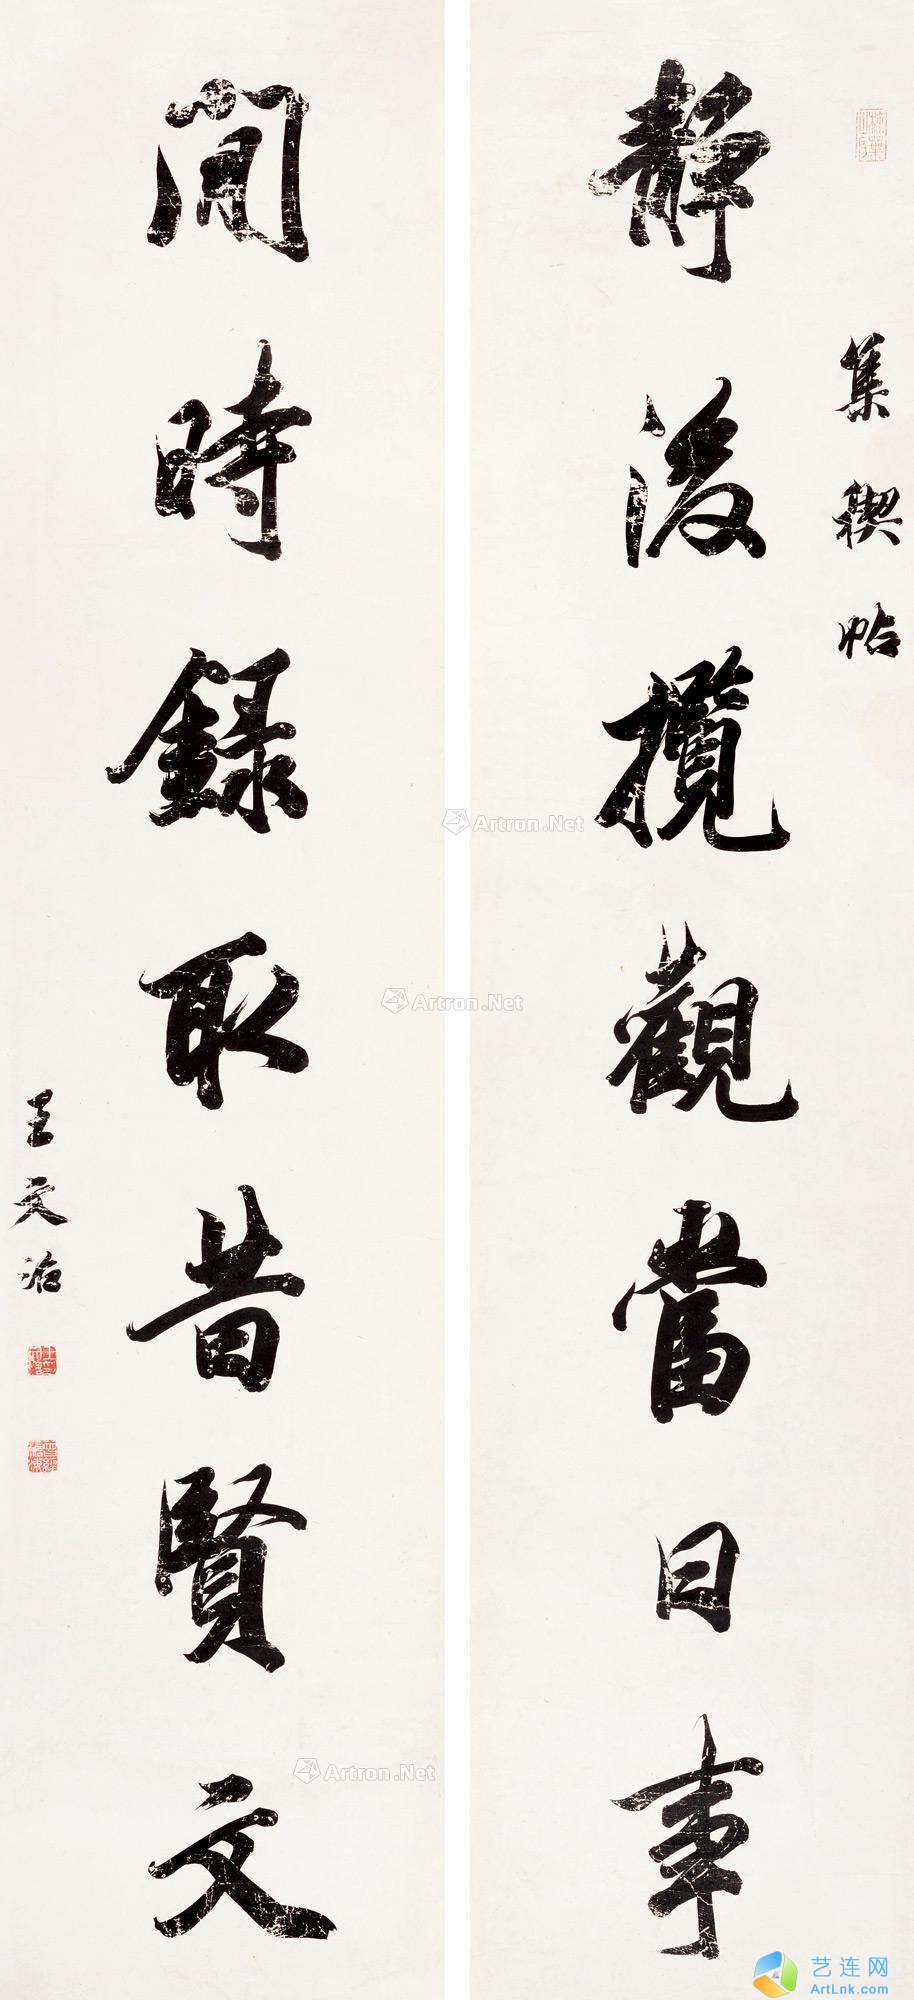 集禊帖
靜後攬觀當日事
閒時録取昔賢文
王文治
Artron.Net
Artron.Net
Artron.Net
艺连网
ArtLnk.com